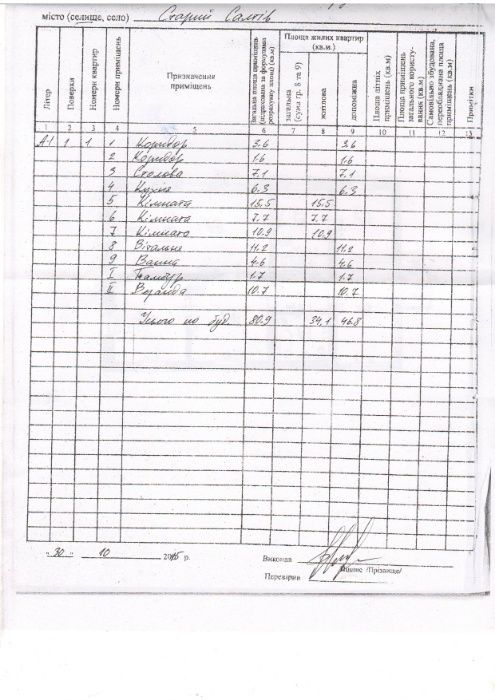 місто (селище, село) Старий Салтів
Літер
Поверхи
Номери квартир
Номери приміщень
Призначення приміщень
Загальна площа приміщень (підрахована за формулами розрахунку площ) (кв.м)
Площа жилих квартир (кв.м.)
загальна (сума гр. 8 та 9)
житлова
допоміжна
Площа літніх приміщень (кв.м)
Площа приміщень загального користування (кв.м)
Самовільно збудована, переобладнана площа приміщень (кв.м)
Примітки
1 2 3 4 5 6 7 8 9 10 11 12 13
А-1 1 1 1 Коридор 3.6 3.6
2 Коридор 1.6 1.6
3 Столова 7.1 7.1
4 Кухня 6.3 6.3
5 Кімната 15.5 15.5
6 Кімната 7.7 7.7
7 Кімната 10.9 10.9
8 Вітальня 11.2 11.2
9 Ванна 4.6 4.6
I Тамбур 1.7 1.7
II Веранда 10.7 10.7
Усього по буд. 80.9 34.1 46.8
"30" 10 2015 р.
Виконав
/Підпис /Прізвище/
Перевірив